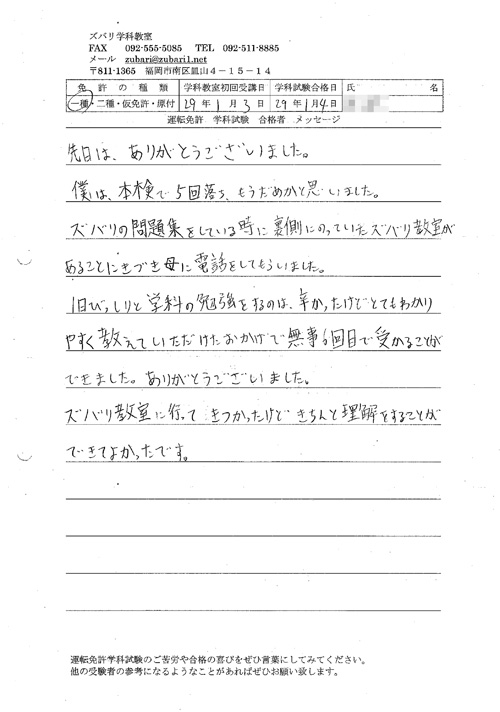 ズバリ学科教室
FAX 092-555-5085 TEL 092-511-8885
メール zubari@zubari1.net
〒811-1365 福岡市南区皿山4-15-14
免許の種類 学科教室初回受講日 学科試験合格日 氏名
一種・二種・仮免許・原付 29年1月3日 29年1月4日
運転免許 学科試験 合格者 メッセージ
先日は、ありがとうございました。
僕は、本検で5回落ち、もうだめかと思いました。
ズバリの問題集をしている時に裏側にのっていたズバリ教室が
あることにきづき母に電話をしてもらいました。
1日びっしりと学科の勉強をするのは、辛かったけどとてもわかり
やすく教えていただけたおかげで無事6回目で受かることが
できました。ありがとうございました。
ズバリ教室に行って きつかったけど きちんと理解をすることが
できてよかったです。
運転免許学科試験のご苦労や合格の喜びをぜひ言葉にしてみてください。
他の受験者の参考になるようなことがあればぜひお願い致します。